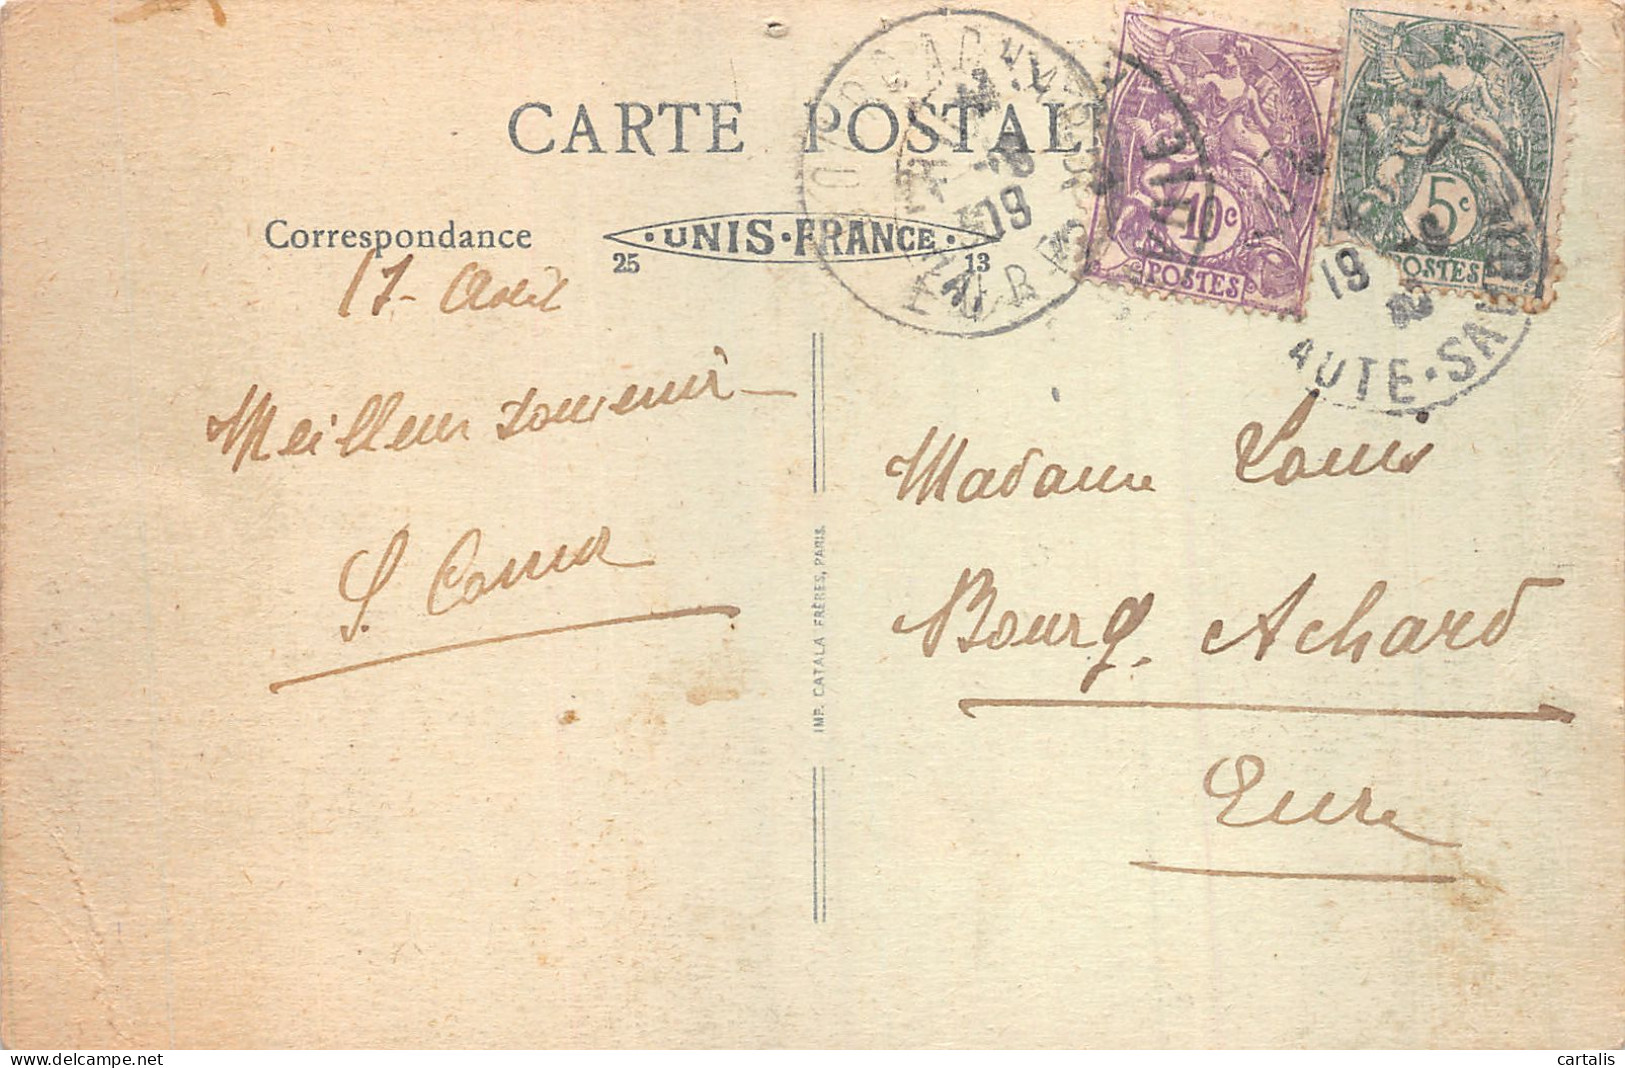 CARTE POSTALE
Correspondance
UNIS-FRANCE
25 13
17- Août
Meilleur souvenir
10c
POSTES
5c
POSTES
AUTE-SA
IMP. CATALA FRÈRES, PARIS.
Madame Louis
Bourg. Achard
Eure
cartalis